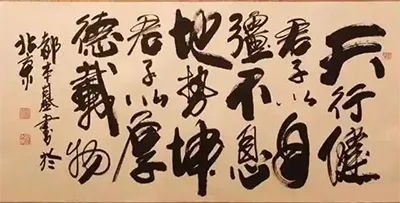 天行健
君子以自
彊不息
地勢坤
君子以厚
德載物
都本基書於
北京